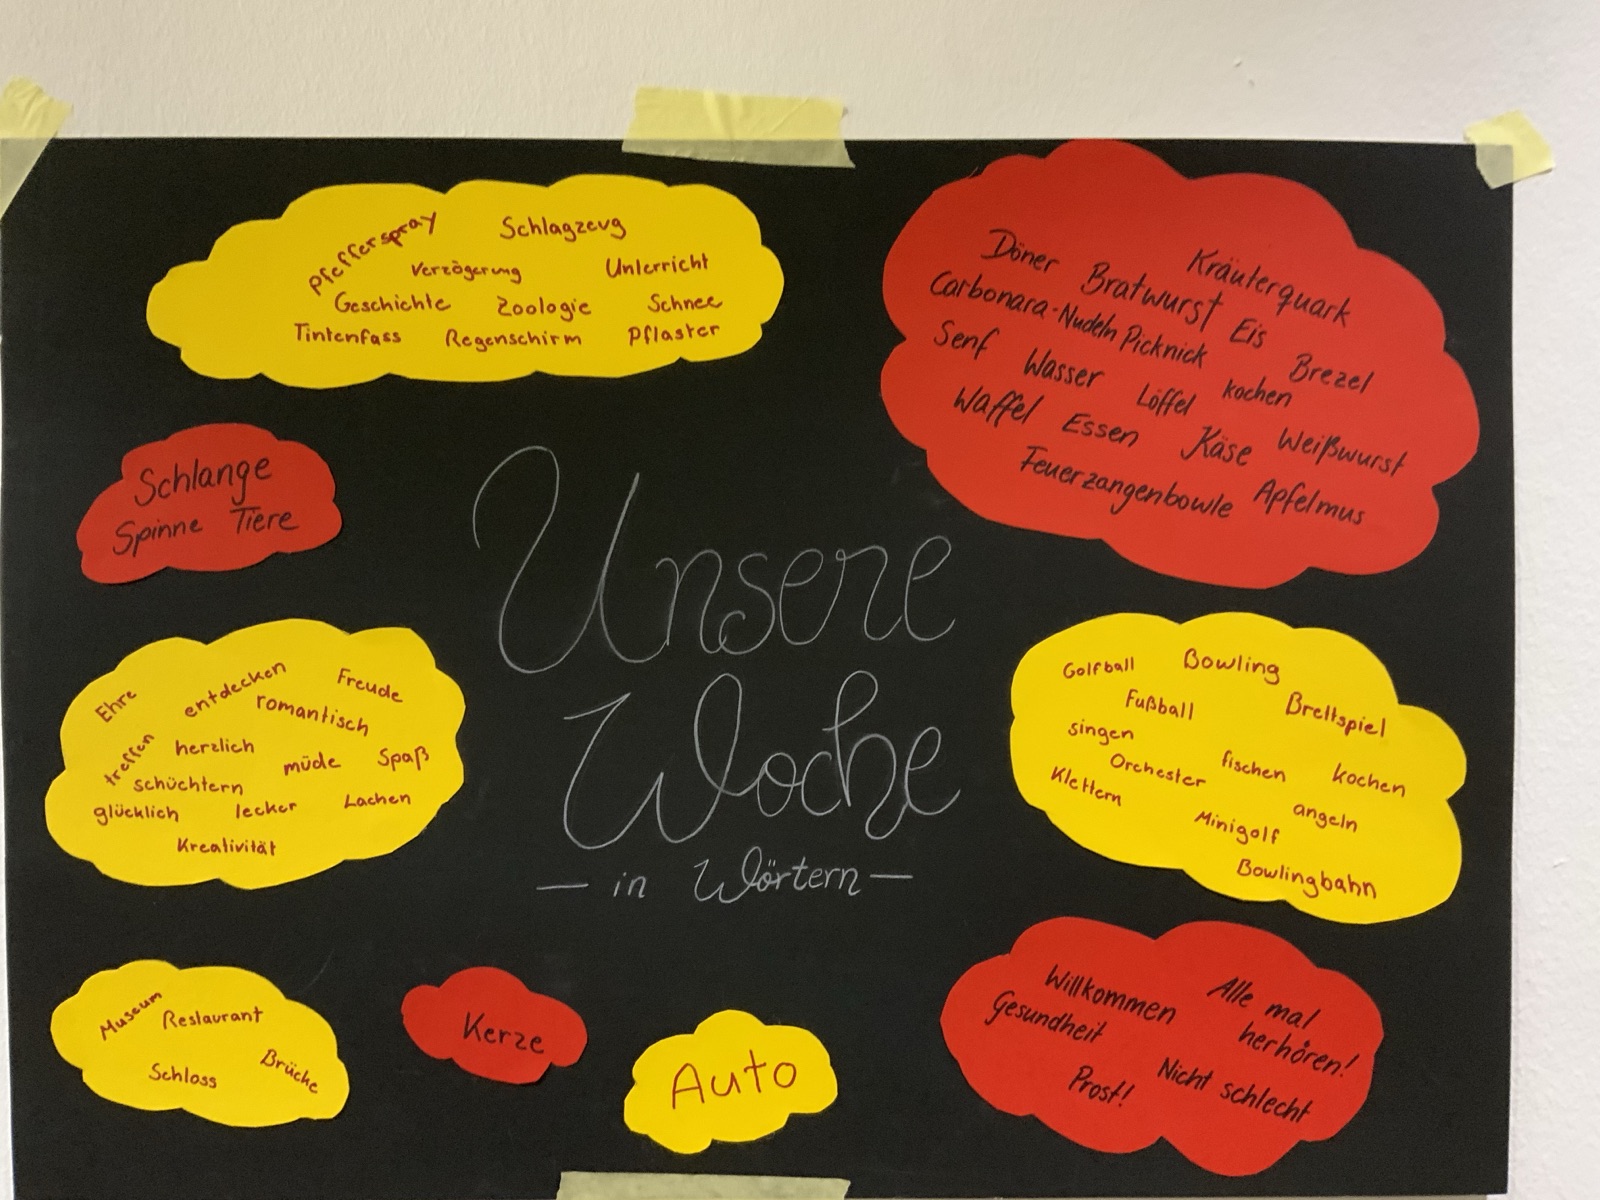 Pfefferspray Schlagzeug
Verzögerung Unterricht
Geschichte Zoologie Schnee
Tintenfass Regenschirm Pflaster
Döner Kräuterquark
Bratwurst
Carbonara-Nudeln Picknick Eis
Senf Wasser Löffel kochen Brezel
Waffel Essen Käse Weißwurst
Feuerzangenbowle Apfelmus
Schlange
Spinne Tiere
Unsere
Woche
— in Wörtern —
Ehre entdecken Freude
romantisch
treffen herzlich müde Spaß
schüchtern
glücklich lecker Lachen
Kreativität
Golfball Bowling
Fußball Brettspiel
singen
Orchester fischen kochen
Klettern angeln
Minigolf
Bowlingbahn
Museum Restaurant
Schloss Brücke
Kerze
Auto
Willkommen Alle mal
Gesundheit herhören!
Prost! Nicht schlecht